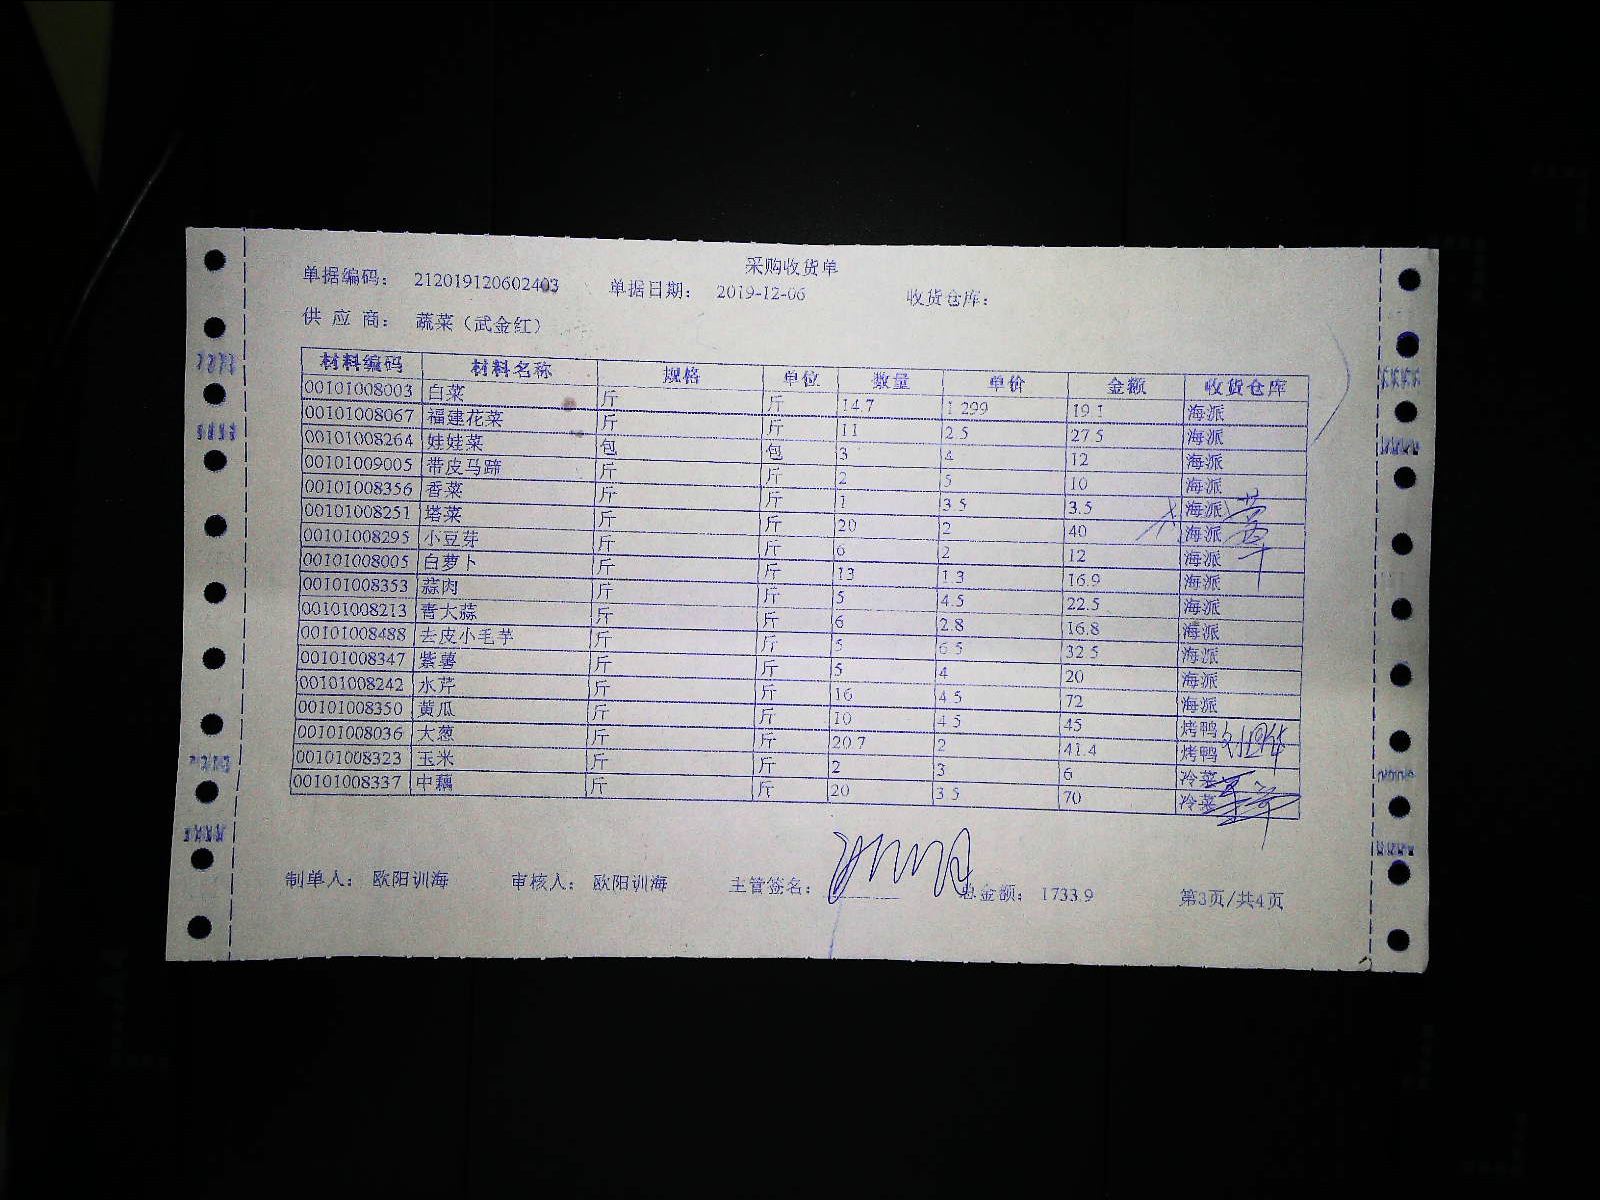 采购收货单
单据编码： 212019120602403 单据日期： 2019-12-06 收货仓库：
供 应 商： 蔬菜（武金红）
材料编码 材料名称 规格 单位 数量 单价 金额 收货仓库
00101008003 白菜 斤 斤 14.7 1.299 19.1 海派
00101008067 福建花菜 斤 斤 11 2.5 27.5 海派
00101008264 娃娃菜 包 包 3 4 12 海派
00101009005 带皮马蹄 斤 斤 2 5 10 海派
00101008356 香菜 斤 斤 1 3.5 3.5 海派
00101008251 塔菜 斤 斤 20 2 40 海派
00101008295 小豆芽 斤 斤 6 2 12 海派
00101008005 白萝卜 斤 斤 13 1.3 16.9 海派
00101008353 蒜肉 斤 斤 5 4.5 22.5 海派
00101008213 青大蒜 斤 斤 6 2.8 16.8 海派
00101008488 去皮小毛芋 斤 斤 5 6.5 32.5 海派
00101008347 紫薯 斤 斤 5 4 20 海派
00101008242 水芹 斤 斤 16 4.5 72 海派
00101008350 黄瓜 斤 斤 10 4.5 45 烤鸭
00101008036 大葱 斤 斤 20.7 2 41.4 烤鸭
00101008323 玉米 斤 斤 2 3 6 冷菜
00101008337 中藕 斤 斤 20 3.5 70 冷菜
制单人： 欧阳训海 审核人： 欧阳训海 主管签名： 总金额： 1733.9 第3页/共4页